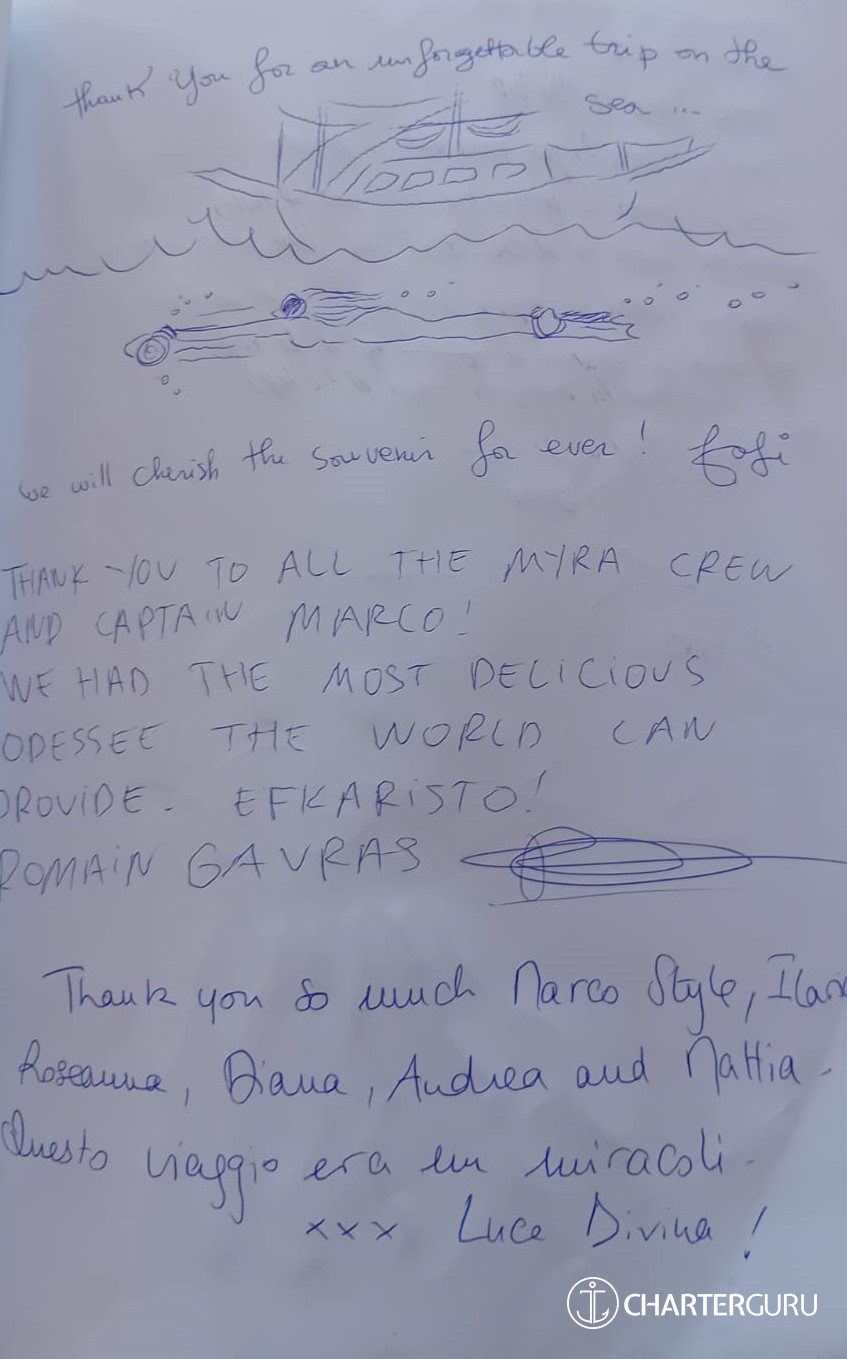 Thank you for an unforgettable trip on the
sea ...
we will cherish the souvenir for ever !
THANK-YOU TO ALL THE MYRA CREW
AND CAPTAIN MARCO!
WE HAD THE MOST DELICIOUS
ODESSEE THE WORLD CAN
PROVIDE. EFKARISTO!
ROMAIN GAVRAS
Thank you so much Marco Style,
Roseanna, Diana, Andrea and Mattia.
Questo viaggio era un miracoli.
xxx Luce Divina !
CHARTERGURU